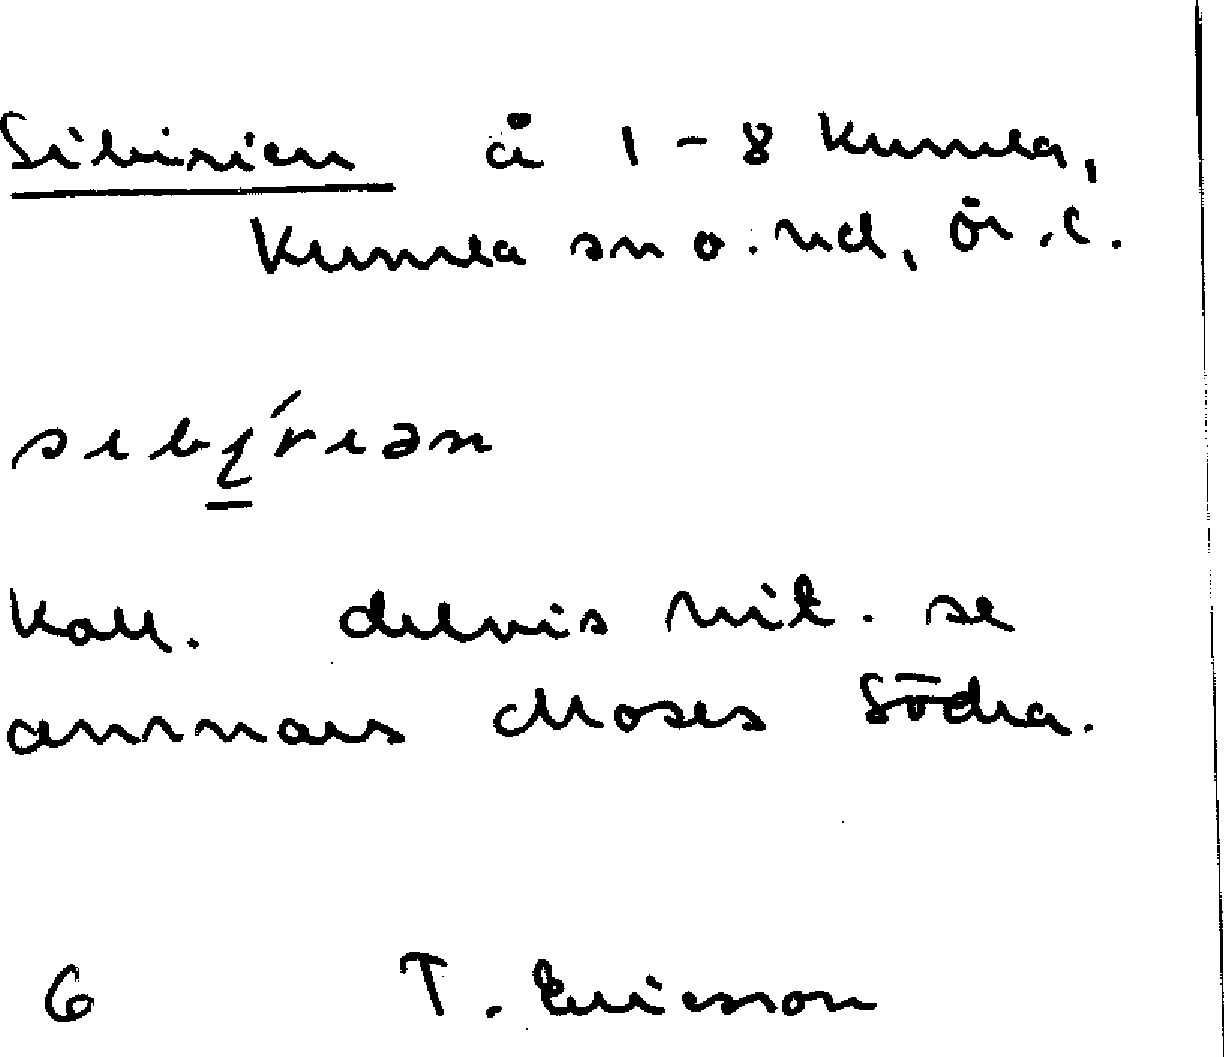 Sibirien å 1-8 Kumla,
Kumla sn o. hd, Ör. l.
sibí̱riən
Kall. delvis
annars Moses Södra.
6 T. Ericsson